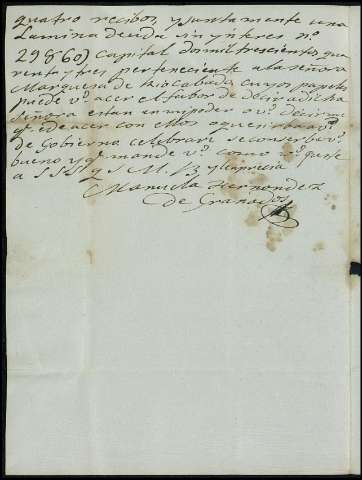 quatro recibos, y juntamente una
Lamina deuda sin ynteres nº
29860) Capital dos mil trescientos qua
renta y tres perteneciente a la señora
Marquesa de cuyos papeles
puede vº acer el fabor de decir a dicha
Señora estan en mi poder o vº decirme
qº ide acer con ellos o quen
de Gobierna celebrare se conserbe vº
bueno y qº mande vº como vº guste
a S S S q S M B y le aprecia
Manuela Hernandez
de Granados